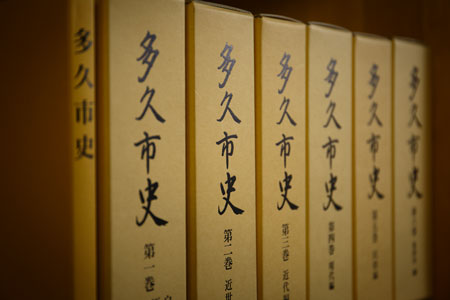 多久市史
多久市史 第一巻
多久市史 第二巻 近世
多久市史 第三巻 近代編
多久市史 第四巻 現代編
多久市史 第五巻
多久市史